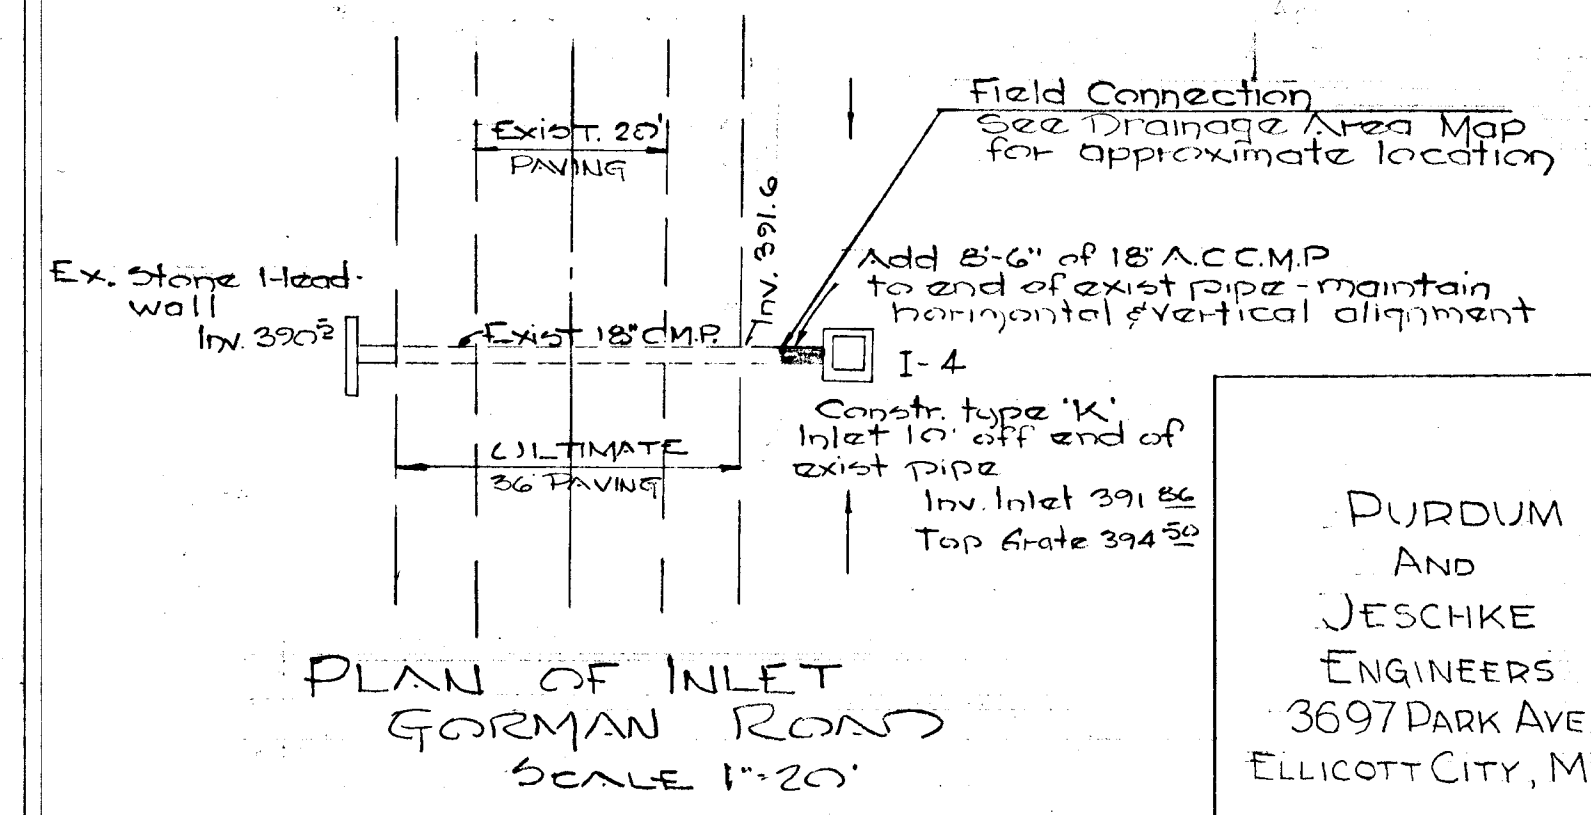 Field Connection
See Drainage Area Map
for approximate location
EXIST. 20'
PAVING
Inv. 391.6
Add 8'-6" of 18" A.C C.M.P
to end of exist pipe - maintain
horizontal & vertical alignment
Ex. Stone Head-
wall
Inv. 390
Exist 18" C.M.P.
I-4
Constr. type 'K'
Inlet 10' off end of
exist pipe
Inv. Inlet 391 86
Top Grate 394 50
ULTIMATE
36' PAVING
PLAN OF INLET
GORMAN ROAD
SCALE 1"=20'
PURDUM
AND
JESCHKE
ENGINEERS
3697 PARK AVE
ELLICOTT CITY, M